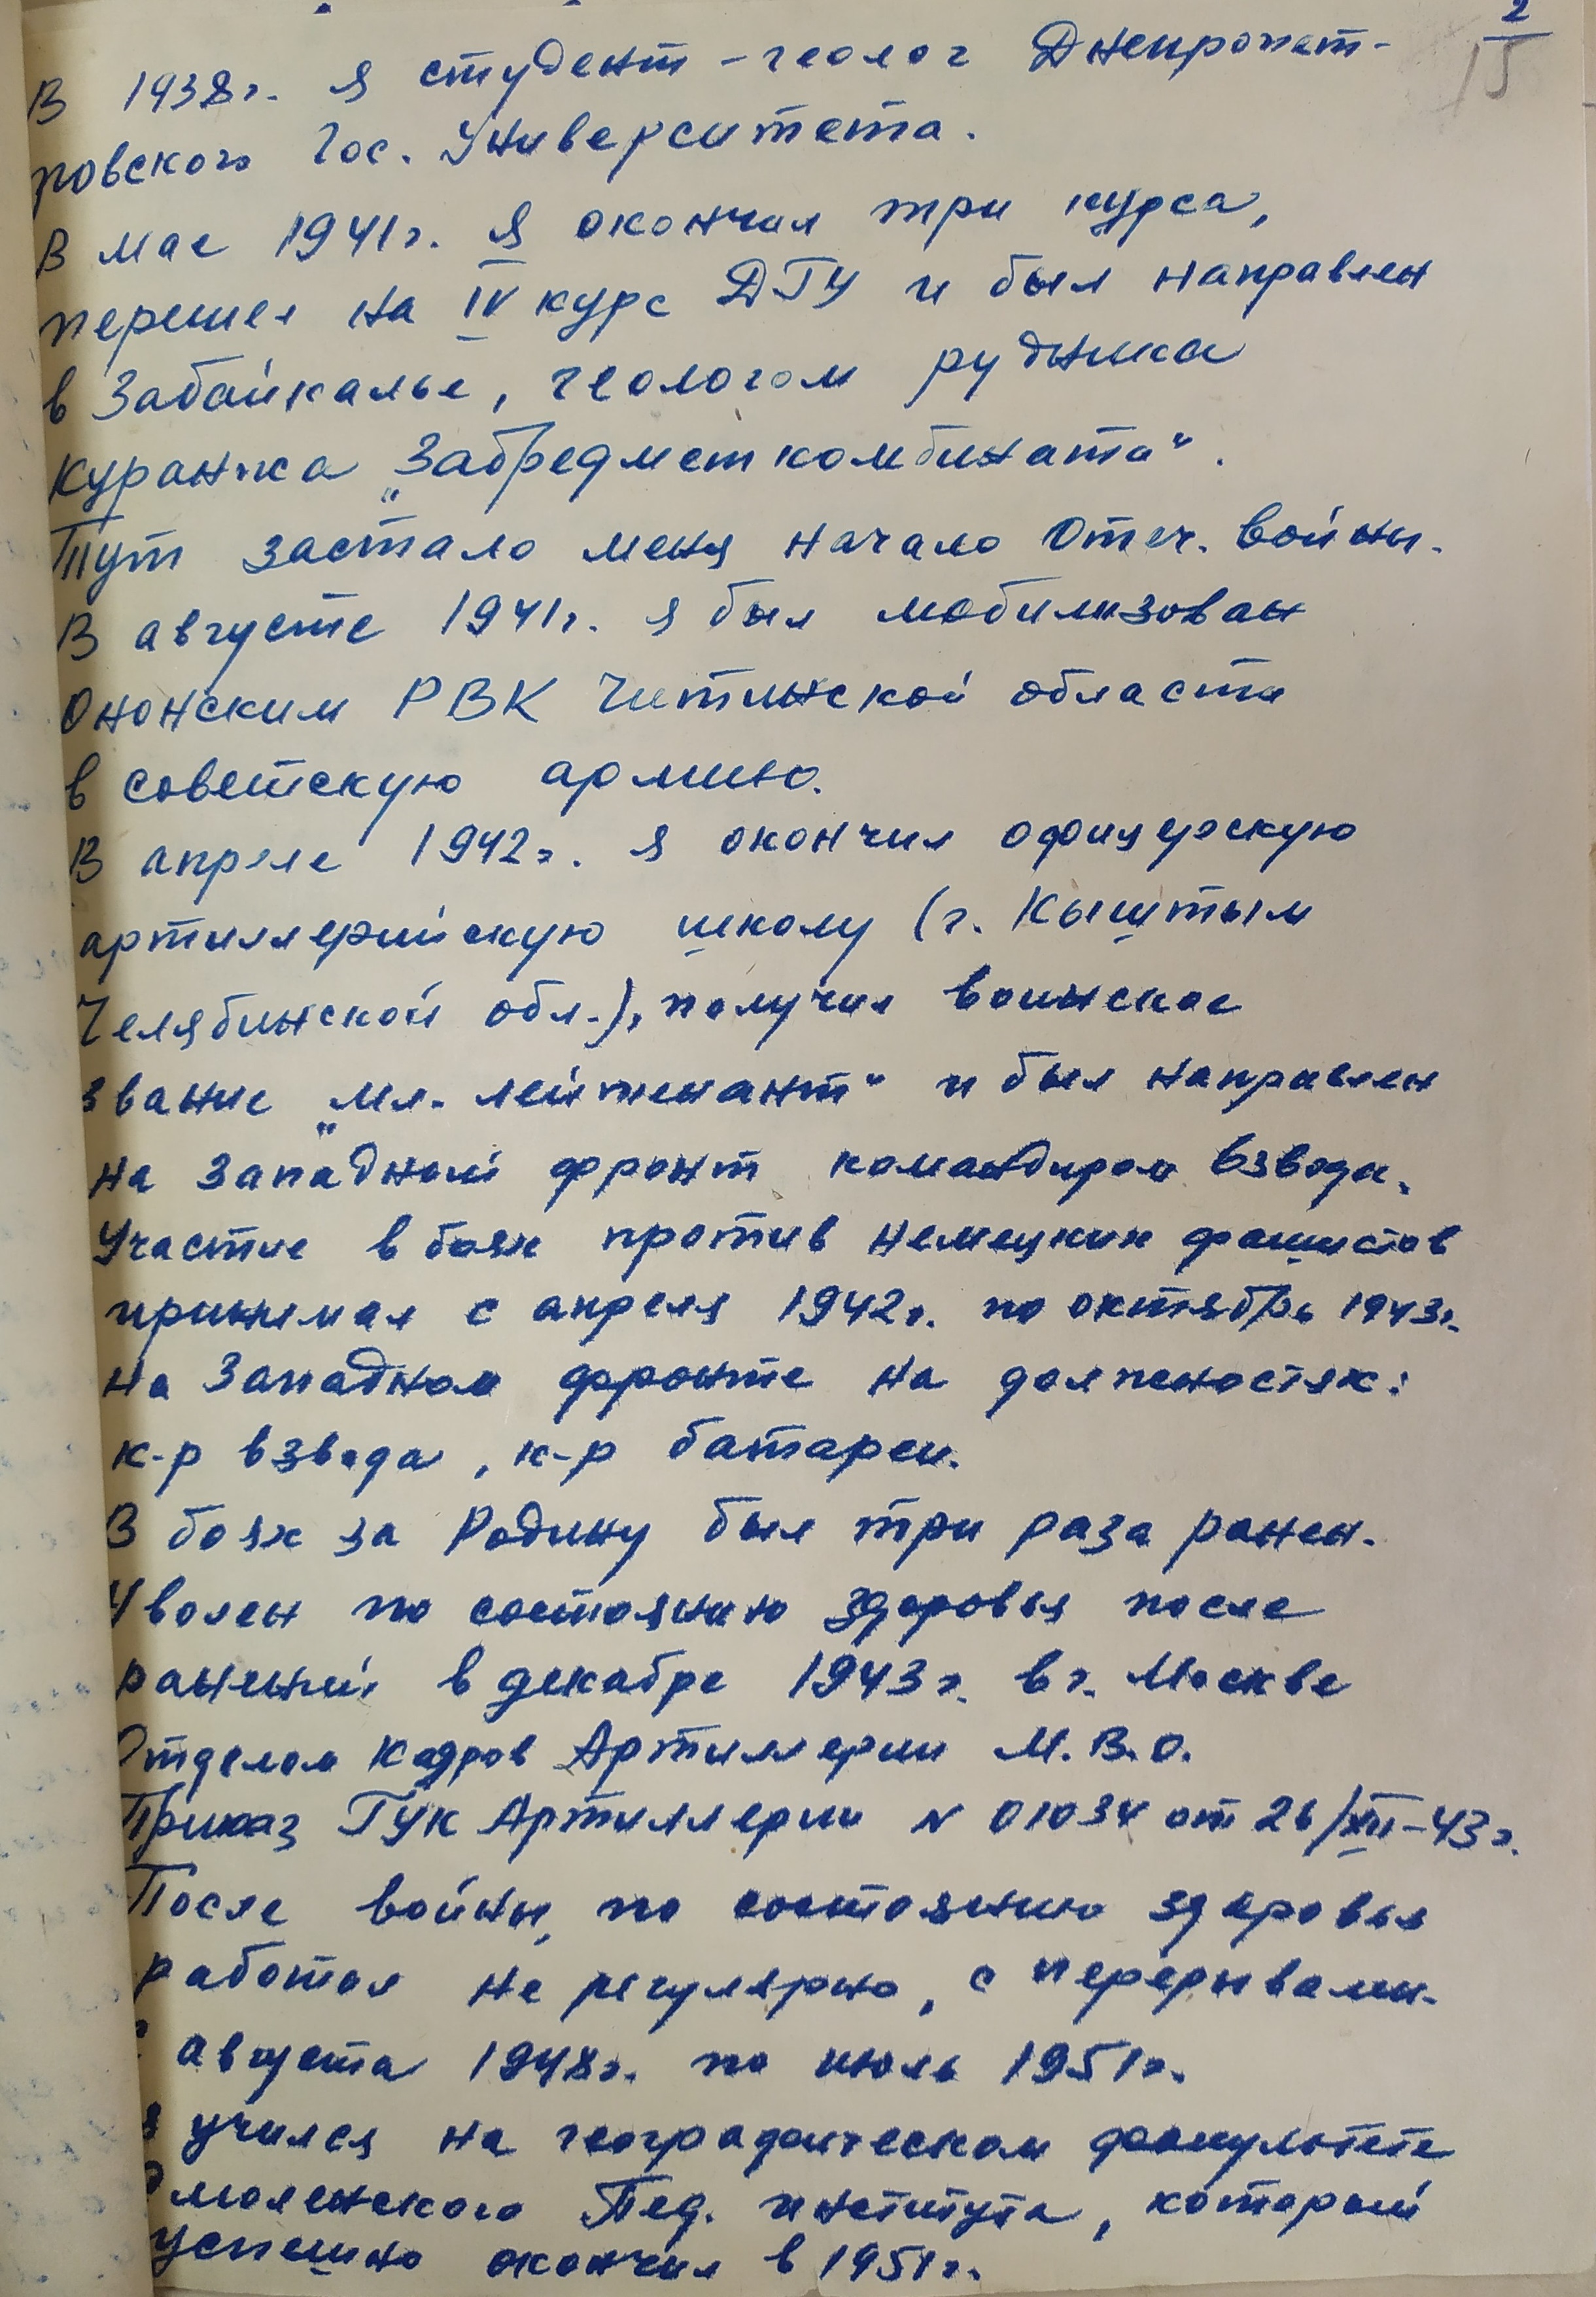 2
15
В 1938г. я студент-геолог Днепропет-
ровского Гос. Университета.
В мае 1941г. я окончил три курса,
перешел на IV курс ДГУ и был направлен
в Забайкалье, геологом рудника
Куранжа „Забредметкомбината“.
Тут застало меня начало Отеч. войны.
В августе 1941г. я был мобилизован
Ононским РВК Читинской области
в советскую армию.
В апреле 1942г. я окончил офицерскую
артиллерийскую школу (г. Кыштым
Челябинской обл.), получил воинское
звание „мл. лейтенант“ и был направлен
на Западный фронт командиром взвода.
Участие в боях против немецких фашистов
принимал с апреля 1942г. по октябрь 1943г.
на Западном фронте на должностях:
к-р взвода, к-р батареи.
В боях за Родину был три раза ранен.
Уволен по состоянию здоровья после
ранений в декабре 1943г. в г. Москве
Отделом кадров Артиллерии М.В.О.
Приказ ГУК Артиллерии N 01034 от 26/XII-43г.
После войны, по состоянию здоровья
работал не регулярно, с перерывами.
С августа 1948г. по июль 1951г.
я учился на географическом факультете
Смоленского Пед. института, который
успешно окончил в 1951г.